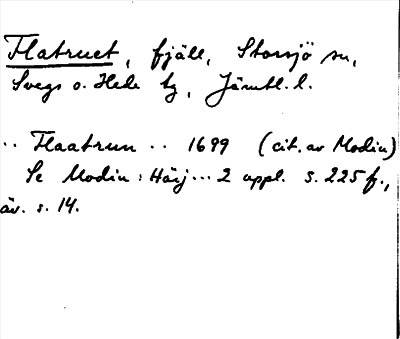 Flatruet, fjäll, Storsjö sn,
Svegs o. Hede tg, Jämtl. l.
.. Flaatrun .. 1699 (cit. av Modin)
Se Modin: Härj... 2 uppl. s. 225 f.,
äv. s. 14.